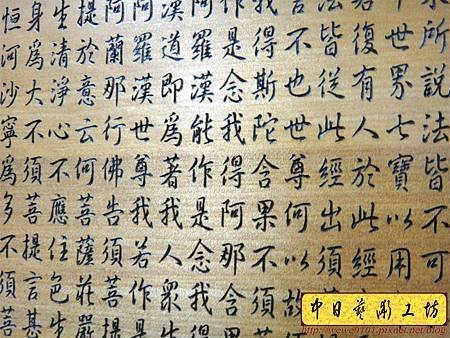 所說法皆不可
世界七寶以用
復有人於此經
皆從此經出須
言不也世尊何以故
我得斯陀含果不須
作是念我得阿那含
阿羅漢能作是念我得
漢道即為著我人眾
阿羅漢世尊我若作是
阿蘭那行佛告須菩
提於意云何菩薩莊嚴
生清淨心不應住色生
身為大不須菩提言甚
恒河沙寧為多不須菩
中日藝雕工坊